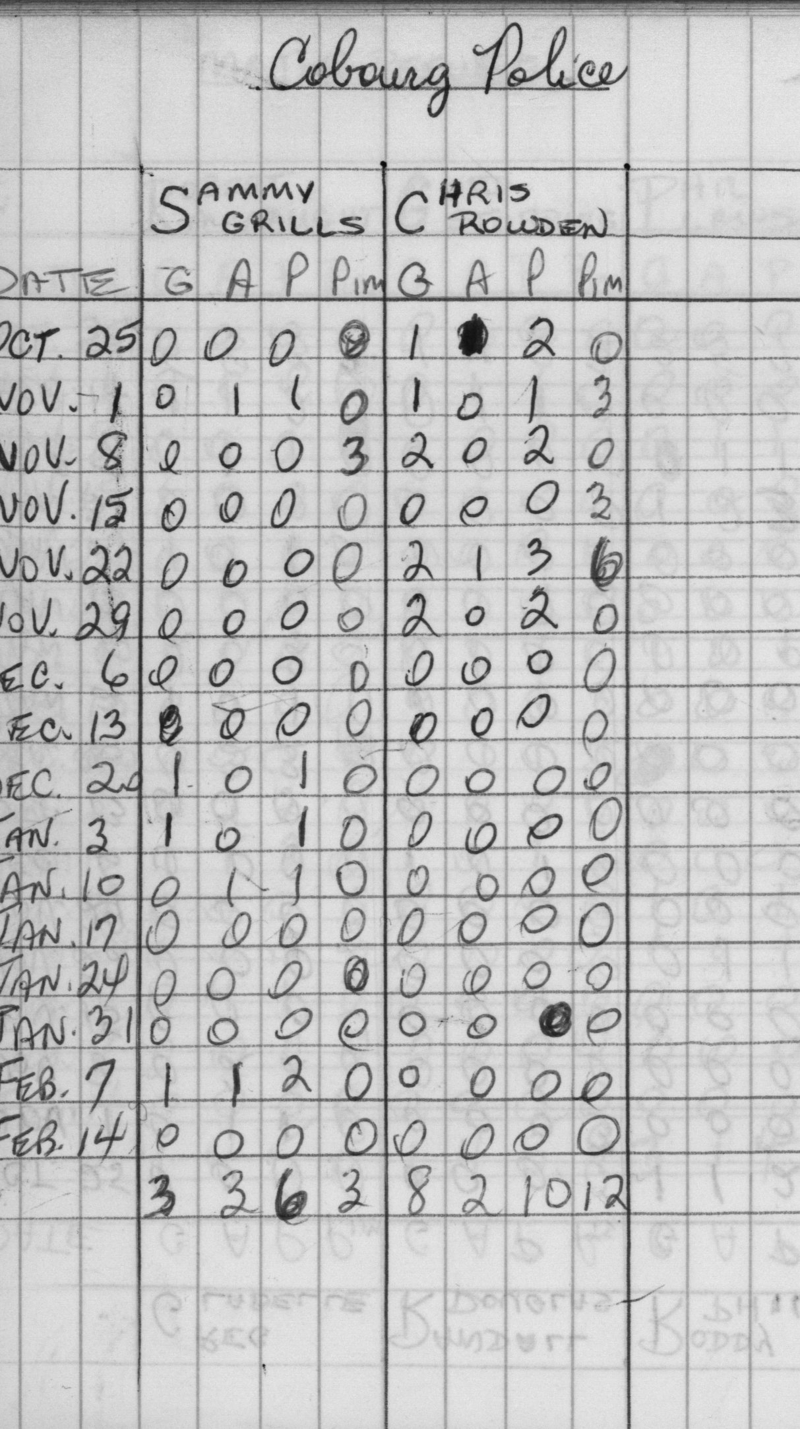 Cobourg Police
SAMMY GRILLS CHRIS ROWDEN
DATE G A P PIM G A P PIM
OCT. 25 0 0 0 0 1 2 0
NOV. 1 0 1 1 0 1 0 1 3
NOV. 8 0 0 0 3 2 0 2 0
NOV. 15 0 0 0 0 0 0 0 3
NOV. 22 0 0 0 0 2 1 3 6
NOV. 29 0 0 0 0 2 0 2 0
EC. 6 0 0 0 0 0 0 0 0
EC. 13 0 0 0 0 0 0 0 0
EC. 20 1 0 1 0 0 0 0 0
JAN. 3 1 0 1 0 0 0 0 0
AN. 10 0 1 1 0 0 0 0 0
JAN. 17 0 0 0 0 0 0 0 0
JAN. 24 0 0 0 0 0 0 0 0
JAN. 31 0 0 0 0 0 0 0
FEB. 7 1 1 2 0 0 0 0 0
FEB. 14 0 0 0 0 0 0 0 0
3 3 6 3 8 2 10 12